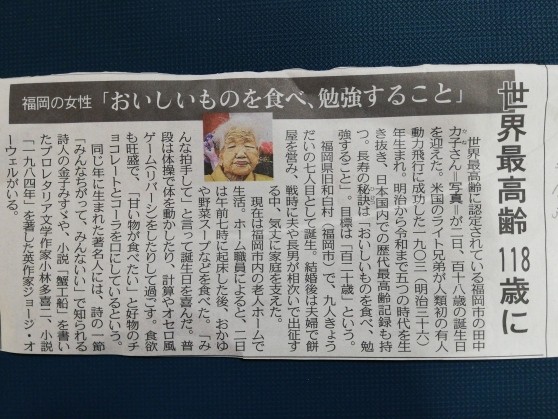 世界最高齢 118歳に
福岡の女性「おいしいものを食べ、勉強すること」
世界最高齢に認定されている福岡市の田中
力子さん＝写真＝が二日、百十八歳の誕生日
を迎えた。米国のライト兄弟が人類初の有人
動力飛行に成功した一九〇三（明治三十六）
年生まれ。明治から令和まで五つの時代を生
き抜き、日本国内での歴代最高齢記録も持
つ。長寿の秘訣は「おいしいものを食べ、勉
強すること」。目標は「百二十歳」という。
福岡県旧和白村（福岡市）で、九人きょう
だいの七人目として誕生。結婚後は夫婦で餅
屋を営み、戦時に夫や長男が相次いで出征す
る中、気丈に家庭を支えた。
現在は福岡市内の老人ホームで
生活。ホーム職員によると、二日
は午前七時に起床した後、おかゆ
や野菜スープなどを食べた。「み
んな拍手して」と言って誕生日を喜んだ。普
段は体操で体を動かしたり、計算やオセロ風
ゲーム（リバーシ）をしたりして過ごす。食欲
も旺盛で、「甘い物が食べたい」と好物のチ
ョコレートとコーラを口にしているという。
同じ年に生まれた著名人には、詩の一節
「みんなちがって、みんないい」で知られる
詩人の金子みすゞや、小説「蟹工船」を書い
たプロレタリア文学作家小林多喜二、小説
「一九八四年」を著した英作家ジョージ・オ
ーウェルがいる。